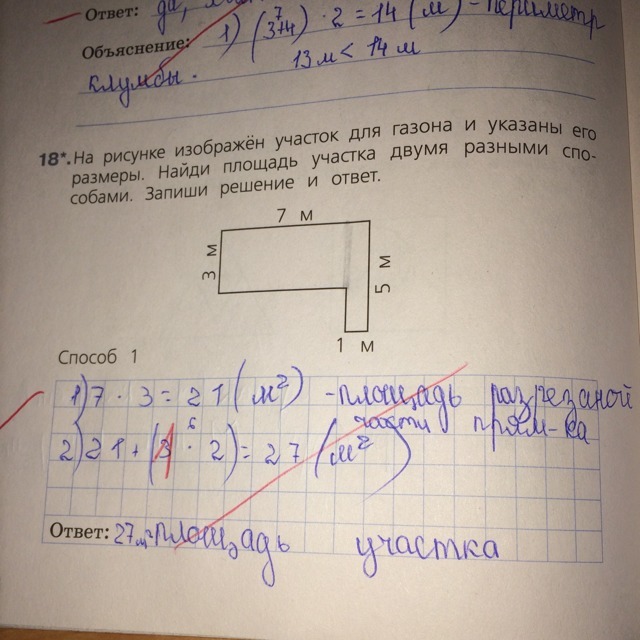 Ответ: да,
Объяснение: 1) (3+4) · 2 = 14 (м) - периметр
7
клумбы. 13 м < 14 м
18*. На рисунке изображён участок для газона и указаны его
размеры. Найди площадь участка двумя разными спо-
собами. Запиши решение и ответ.
7 м
3 м
5 м
1 м
Способ 1
1) 7 · 3 = 21 (м²) - площадь разрезаной
части прям-ка
6
2) 21 + (3 · 2) = 27 (м²)
Ответ: 27м²-площадь участка